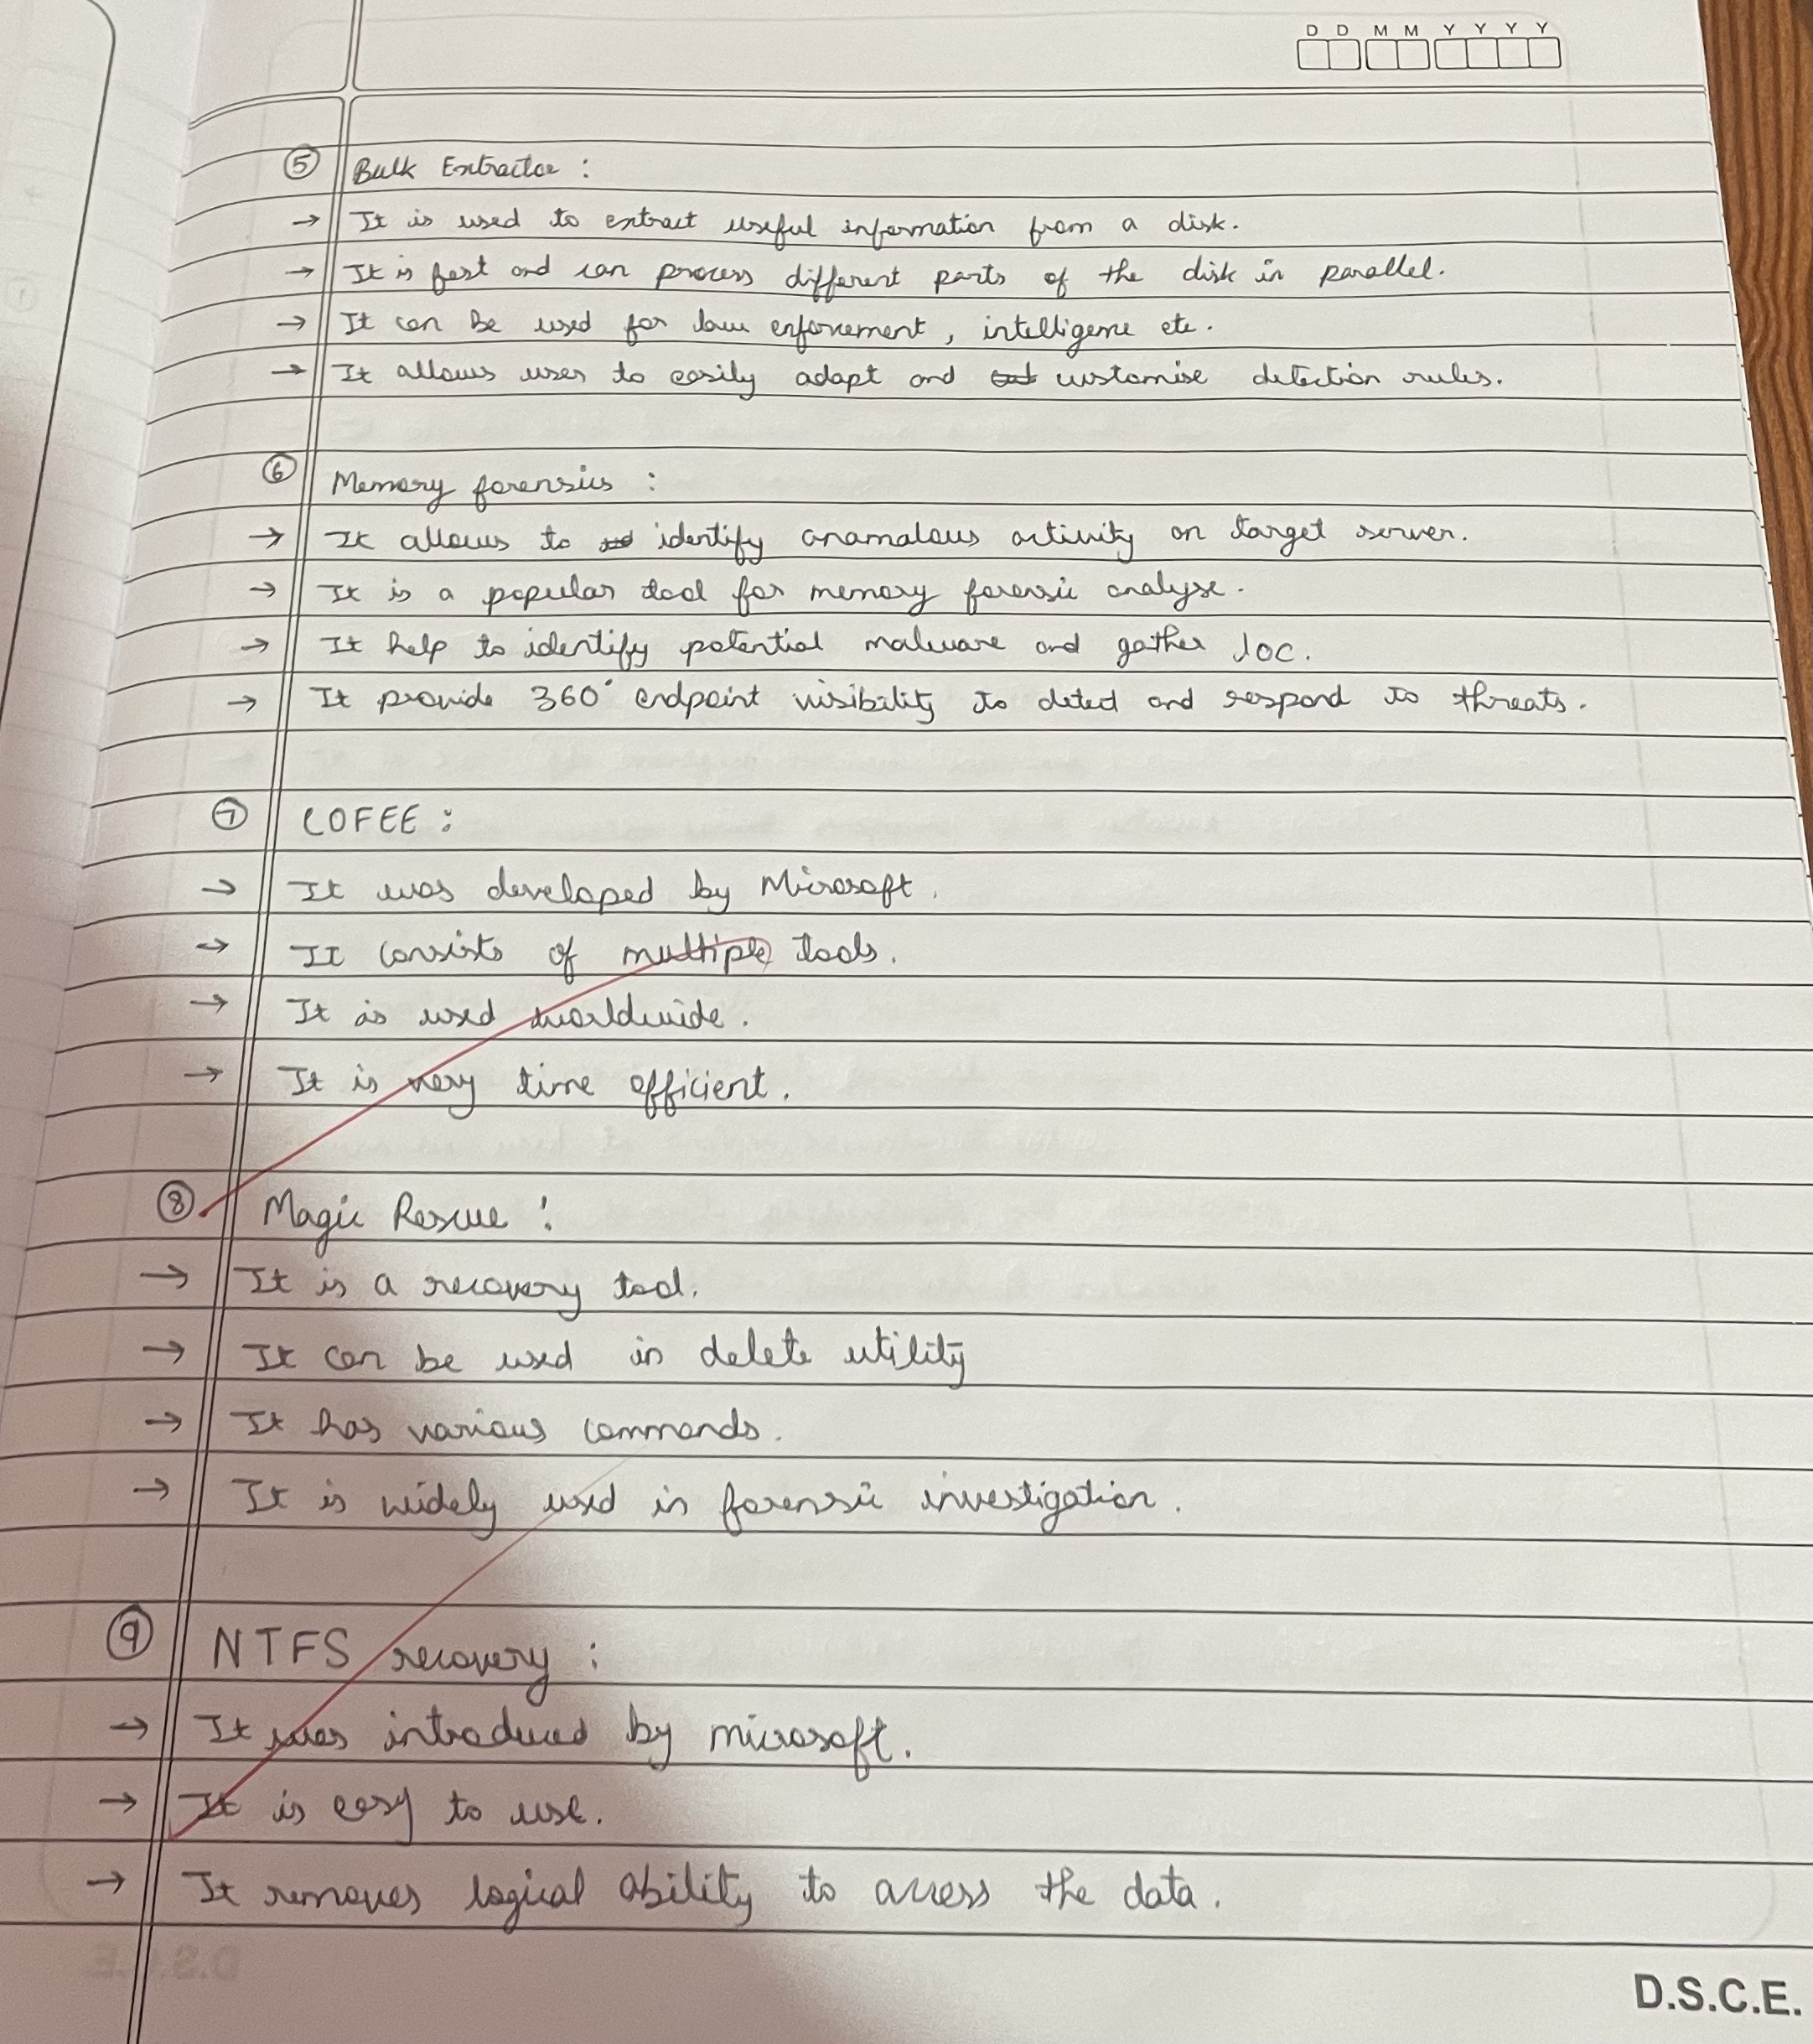 D D M M Y Y Y Y
⑤ Bulk Extractor :
→ It is used to extract useful information from a disk.
→ It is fast and can process different parts of the disk in parallel.
→ It can be used for law enforcement, intelligence etc.
→ It allows uses to easily adapt and customise detection rules.
⑥ Memory forensics :
→ It allows to identify anamalous activity on target server.
→ It is a popular tool for memory forensic analyse.
→ It help to identify potential malware and gather IOC.
→ It provide 360° endpoint visibility to detect and respond to threats.
⑦ COFEE :
→ It was developed by Microsoft.
→ It consists of multiple tools.
→ It is used worldwide.
→ It is very time efficient.
⑧ Magic Rescue :
→ It is a recovery tool.
→ It can be used in delete utility
→ It has various commands.
→ It is widely used in forensic investigation.
⑨ NTFS recovery :
→ It was introduced by microsoft.
→ It is easy to use.
→ It removes logical ability to access the data.
D.S.C.E.